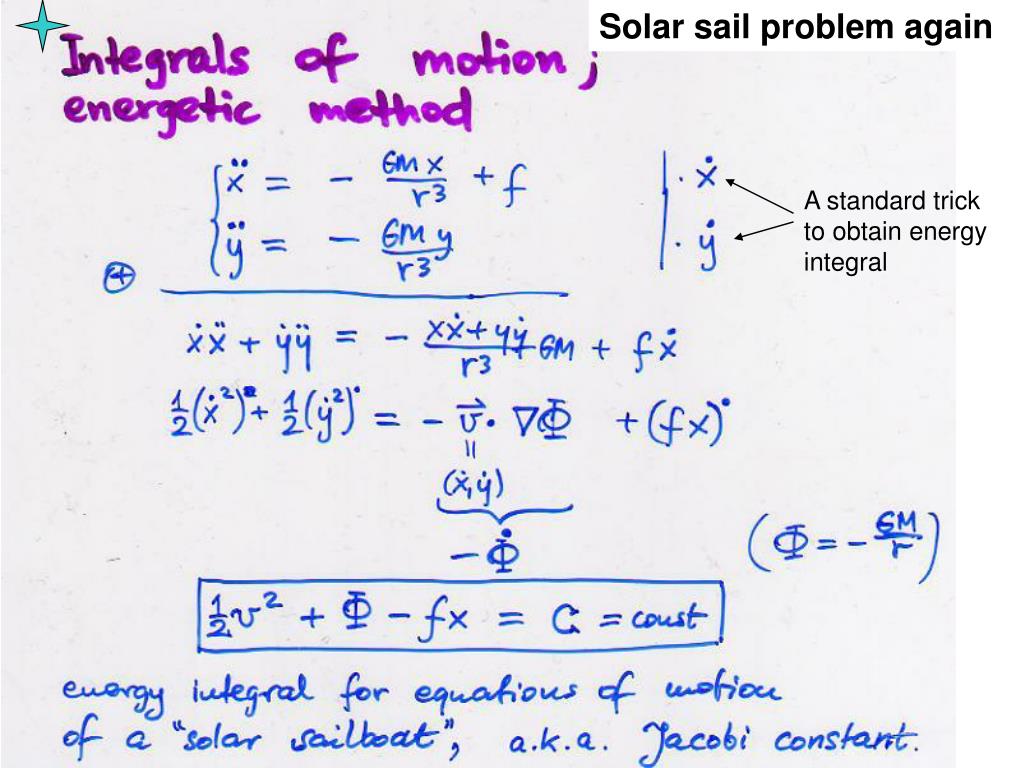 Solar sail problem again
Integrals of motion;
energetic method
ẍ = - GM x / r³ + f | · ẋ
ÿ = - GM y / r³ | · ẏ
A standard trick
to obtain energy
integral
⊕
ẋẍ + ẏÿ = - (xẋ + yẏ) / r³ GM + f ẋ
½(ẋ²)˙ + ½(ẏ²)˙ = - v⃗ · ∇Φ + (fx)˙
||
(ẋ, ẏ)
- Φ̇
(Φ = - GM / r)
½v² + Φ - fx = C = const
energy integral for equations of motion
of a "solar sailboat", a.k.a. Jacobi constant.